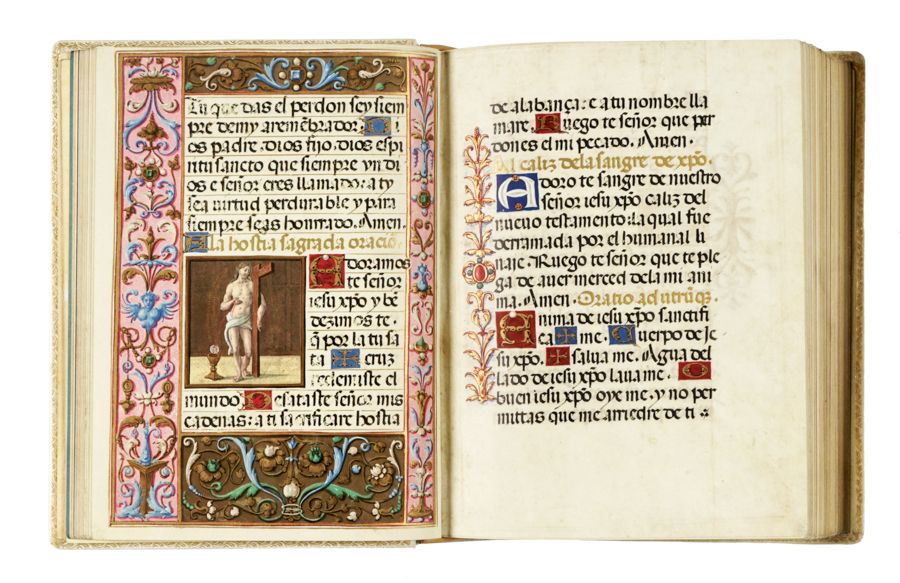 Tu que das el perdon sey siem
pre de my aremēbrador. D i
os padre. dios fijo. dios espi
ritu sancto que siempre vn di
os e señor eres llamado ra ty
sea virtud perdurable y para
siempre seas honrrado. Amen.
A la hostia sagrada oracio.
A doramos
te señor
iesu xp̄o y bē
dezimos te.
q̄ por la tu sa
ta ✠ cruz
redemiste el
mundo D esataste señor mis
cadenas: a ti sacrificare hostia
de alabança: e a tu nombre lla
mare. R uego te señor que per
dones el mi pecado. Amen.
Al caliz dela sangre de xp̄o.
A doro te sangre de nuestro
señor iesu xp̄o caliz del
nueuo testamento: la qual fue
derramada por el humanal li
naie. Ruego te señor que te ple
ga de auer merced dela mi ani
ma. Amen. Oratio ad utrūq̄.
A nima de iesu xp̄o sanctifi
ca ✠ me. C uerpo de ie
su xp̄o. ✠ salua me. Agua del
lado de iesu xp̄o laua me. O
buen iesu xp̄o oye me. y no per
mittas que me arriedre de ti